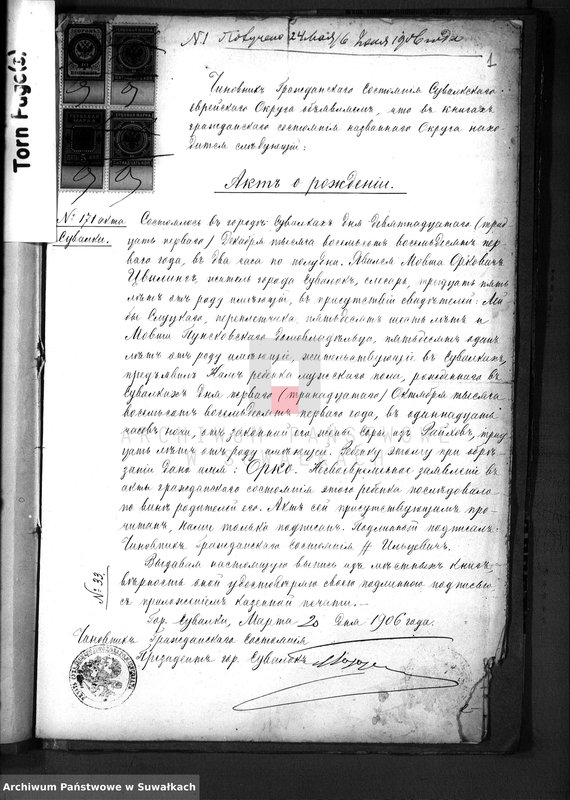 Torn Page(s)
№1 Получено 24 мая/6 Июня 1906 года
1
Чиновникъ Гражданскаго Состоянія Сувалкскаго
еврейскаго Округа объявляетъ, что въ книгахъ
гражданскаго состоянія названнаго Округа нахо-
дится слѣдующій:
Актъ о рожденіи.
№ 171 акта
Сувалки.
Состоялось въ городѣ Сувалкахъ дня девятнадцатаго (трид-
цать перваго) Декабря тысяча восемьсотъ восемьдесятъ пер-
ваго года, въ два часа по полудни. Явился Мовша Орковичъ
Цвилингъ, житель города Сувалокъ, слесарь, тридцать пять
лѣтъ отъ роду имѣющій, въ присутствіи свидѣтелей:
Слуцкаго, переплетчика, пятьдесятъ шесть лѣтъ и
Мовши Пунсковскаго домовладѣльца, пятьдесятъ одинъ
лѣтъ отъ роду имѣющій, жительствующей въ Сувалкахъ,
предъявилъ Намъ ребенка мужескаго пола, рожденнаго въ
Сувалкахъ дня перваго (тринадцатаго) Октября тысяча
восемьсотъ восемьдесятъ перваго года, въ одиннадцать
часовъ ночи, отъ законной его жены Соры изъ трид-
цать лѣтъ отъ роду имѣющей. Ребенку этому при обрѣ-
заніи дано имя: Орко. Несвоевременное заявленіе въ
акты гражданскаго состоянія этого ребенка послѣдовало
по винѣ родителей его. Актъ сей присутствующимъ про-
читанъ, Нами только подписанъ. Подлинный подписалъ:
Чиновникъ Гражданскаго состоянія Ильцевичъ.
Выдавая настоящую выпись изъ мѣстныхъ книгъ
вѣрность оной удостовѣряю своею подлинною подписью
съ приложеніемъ казенной печати.
№ 33
Гор. Сувалки, Марта 20 дня 1906 года.
Чиновникъ Гражданскаго Состоянія
Президентъ гор. Сувалокъ
Archiwum Państwowe w Suwałkach